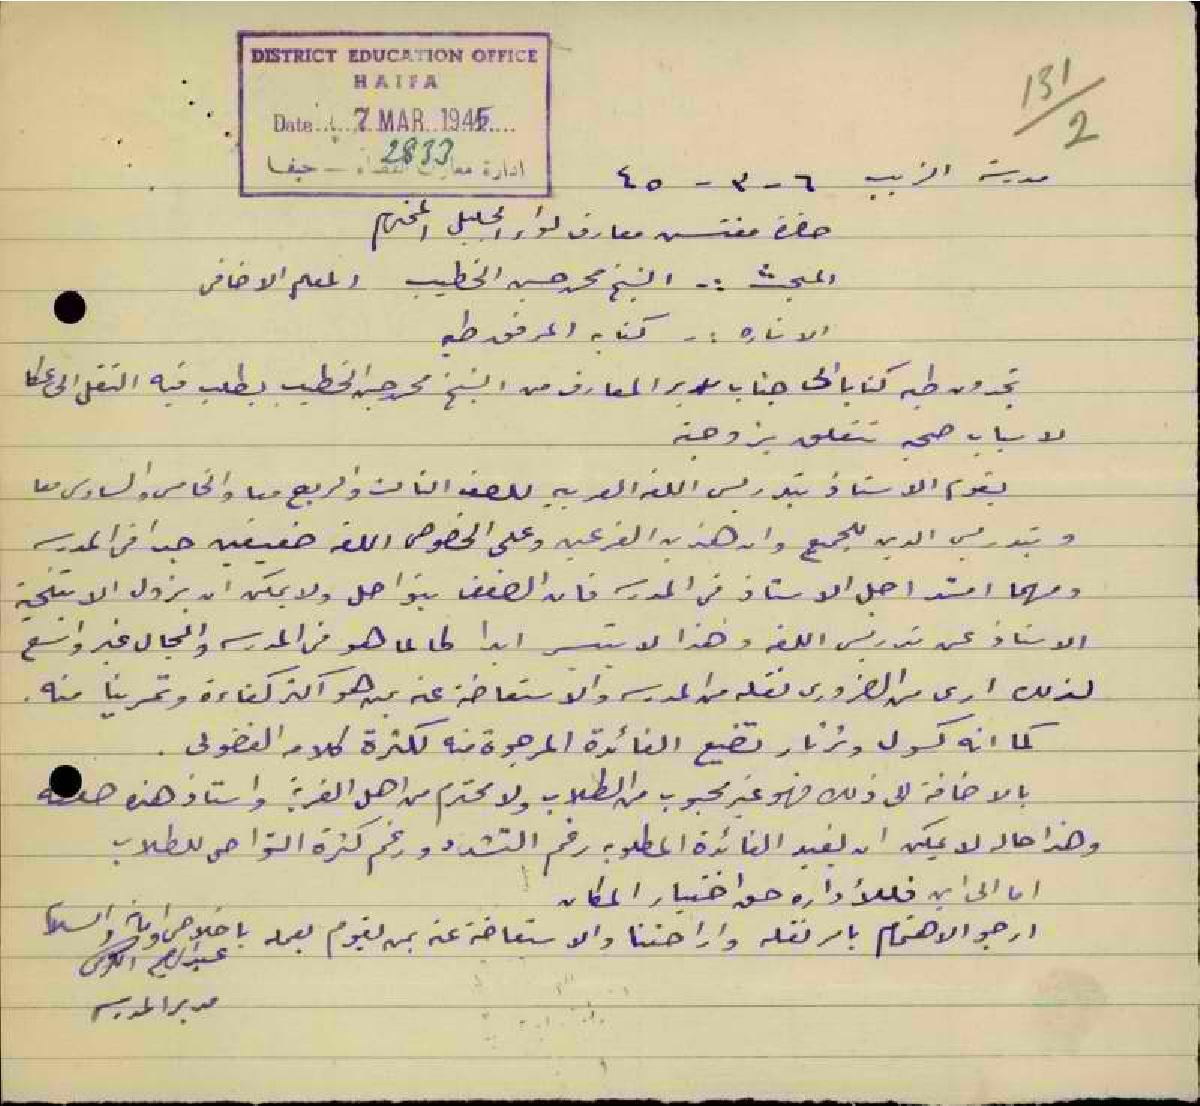 DISTRICT EDUCATION OFFICE
HAIFA
Date 7 MAR 1945
2833
ادارة معارف القضاء – حيفا
131/2
مدرسة الزيب ٦ - ٣ - ٤٥
حضرة مفتش معارف لواء الجليل المحترم
المبحث :- الشيخ محمد حسين الخطيب المعلم الاضافي
الاشاره :- كتابه المرفق طيه
تجدون طيه كتابا الى جناب مدير المعارف من الشيخ محمد حسين الخطيب يطلب فيه النقل الى عكا
لاسباب صحيه تتعلق بزوجته
يقوم الاستاذ بتدريس اللغه العربيه للصف الثالث والرابع معا والخامس والسادس معا
وبتدريس الدين للجميع وان هذين الفرعين وعلى الخصوص اللغه ضعيفين جدا في المدرسه
ومهما امتد اجل الاستاذ في المدرسه فان الضعف يتواصل ولا يمكن ان يزول الا بتنحية
الاستاذ عن تدريس اللغه وهذا لا يتيسر ابدا طالما هو في المدرسه والمجال غير واسع
لذلك ارى من الضروري نقله من المدرسه والاستعاضة عنه بمن هو اكثر كفاءة وتمرينا منه .
كما انه كسول وثرثار تضيع الفائدة المرجوة منه لكثرة كلامه الفضولي .
بالاضافة الى ذلك فهو غير محبوب من الطلاب ولا محترم من اهل القرية واستاذ هذه صفته
وهذا حاله لا يمكن ان يفيد الفائدة المطلوبه رغم التشدد ورغم كثرة التواصي للطلاب
اما الى اين فللأداره حق اختيار المكان
ارجو الاهتمام بامر نقله واراحتنا والاستعاضة عنه بمن يقوم بعمله باخلاص وامانة والسلام
مدير المدرسه